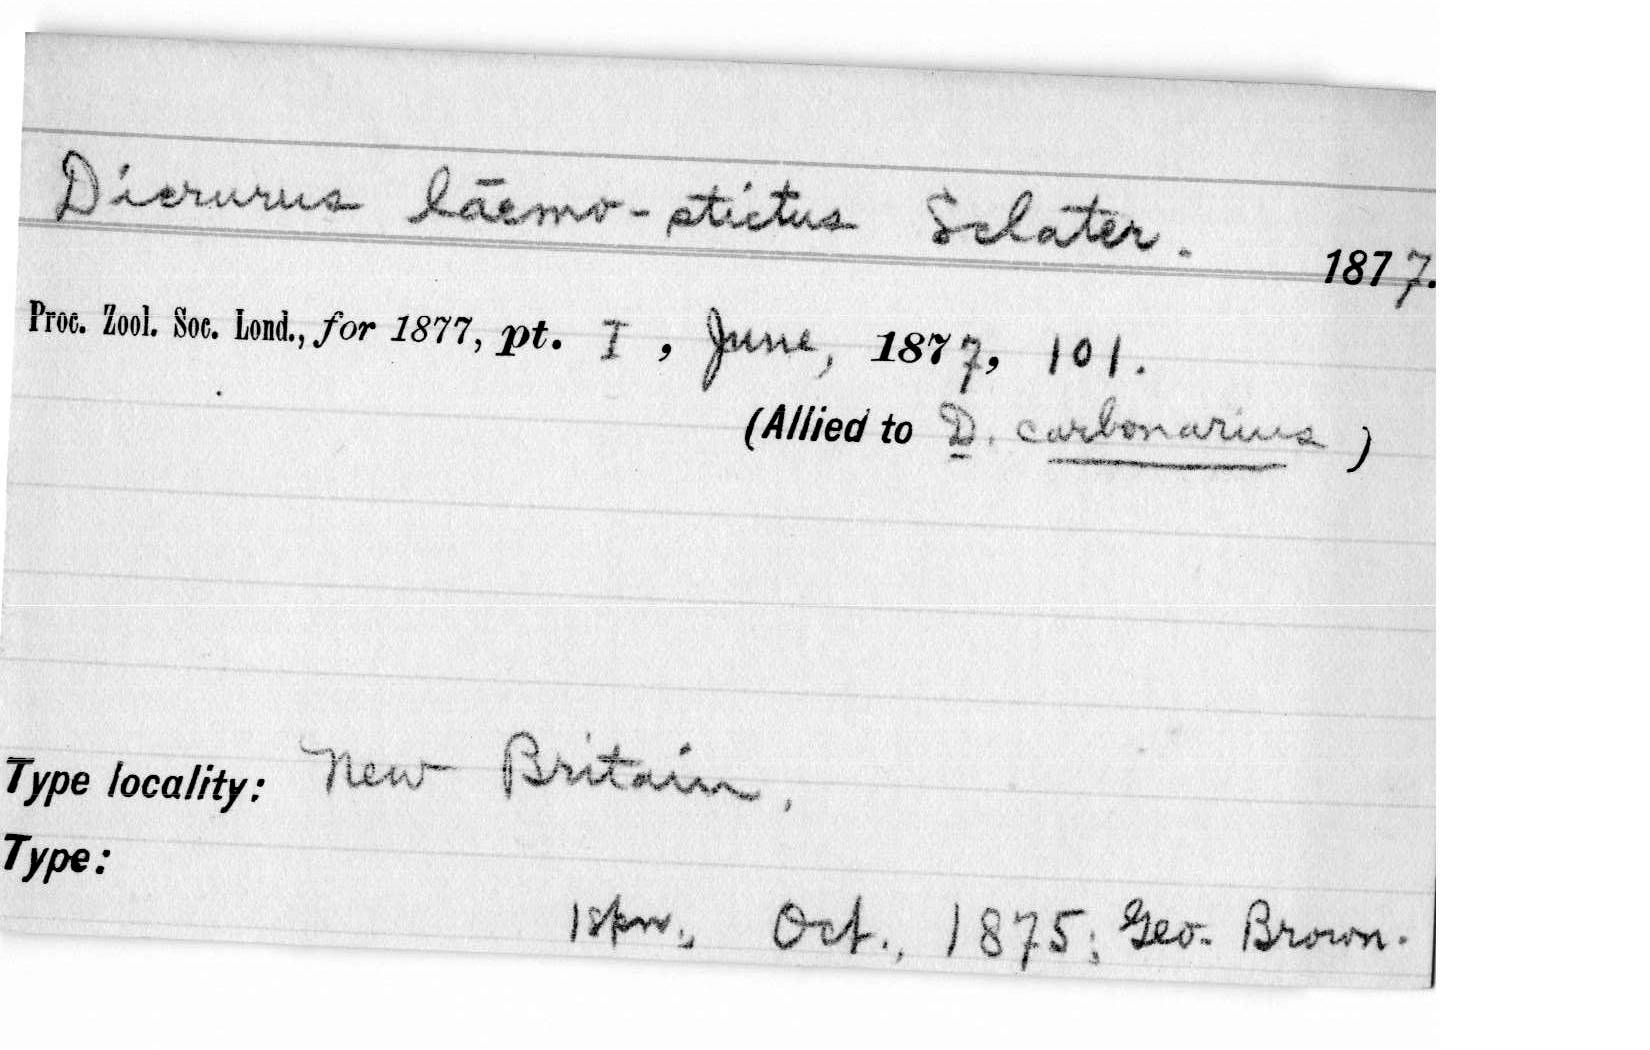 Dicrurus lāemo-stictus Sclater.
1877.
Proc. Zool. Soc. Lond., for 1877, pt. I, June, 1877, 101.
(Allied to D. carbonarius)
Type locality: New Britain.
Type:
1 spn., Oct., 1875; Geo. Brown.